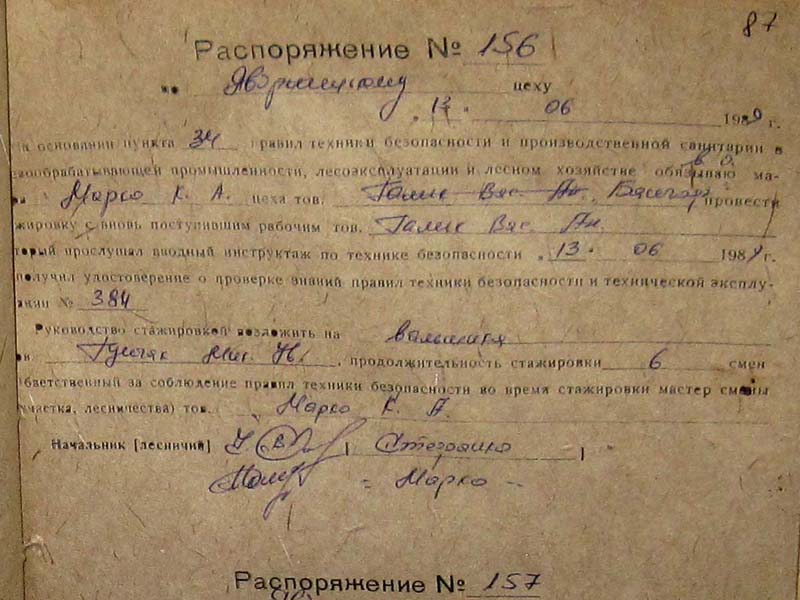 87
Распоряжение № 156
по Яворницкому цеху
" 13 " 06 1989 г.
на основании пункта 34 правил техники безопасности и производственной санитарии в
вообрабатывающей промышленности, лесоэксплуатации и лесном хозяйстве обязываю ма-
Марко К. А. цеха тов. Галик Вяс. Ан. провести
жировку с вновь поступившим рабочим тов. Галик Вяс. Ан.
торый прослушал вводный инструктаж по технике безопасности " 13 " 06 1989 г.
получил удостоверение о проверке знаний правил техники безопасности и технической эксплу-
ации № 384
Руководство стажировкой возложить на вальщика
Мих. , продолжительность стажировки 6 смен
ответственный за соблюдение правил техники безопасности во время стажировки мастер смены
участка, лесничества) тов. Марко К. А.
Начальник [лесничий]
Марко
Распоряжение № 157